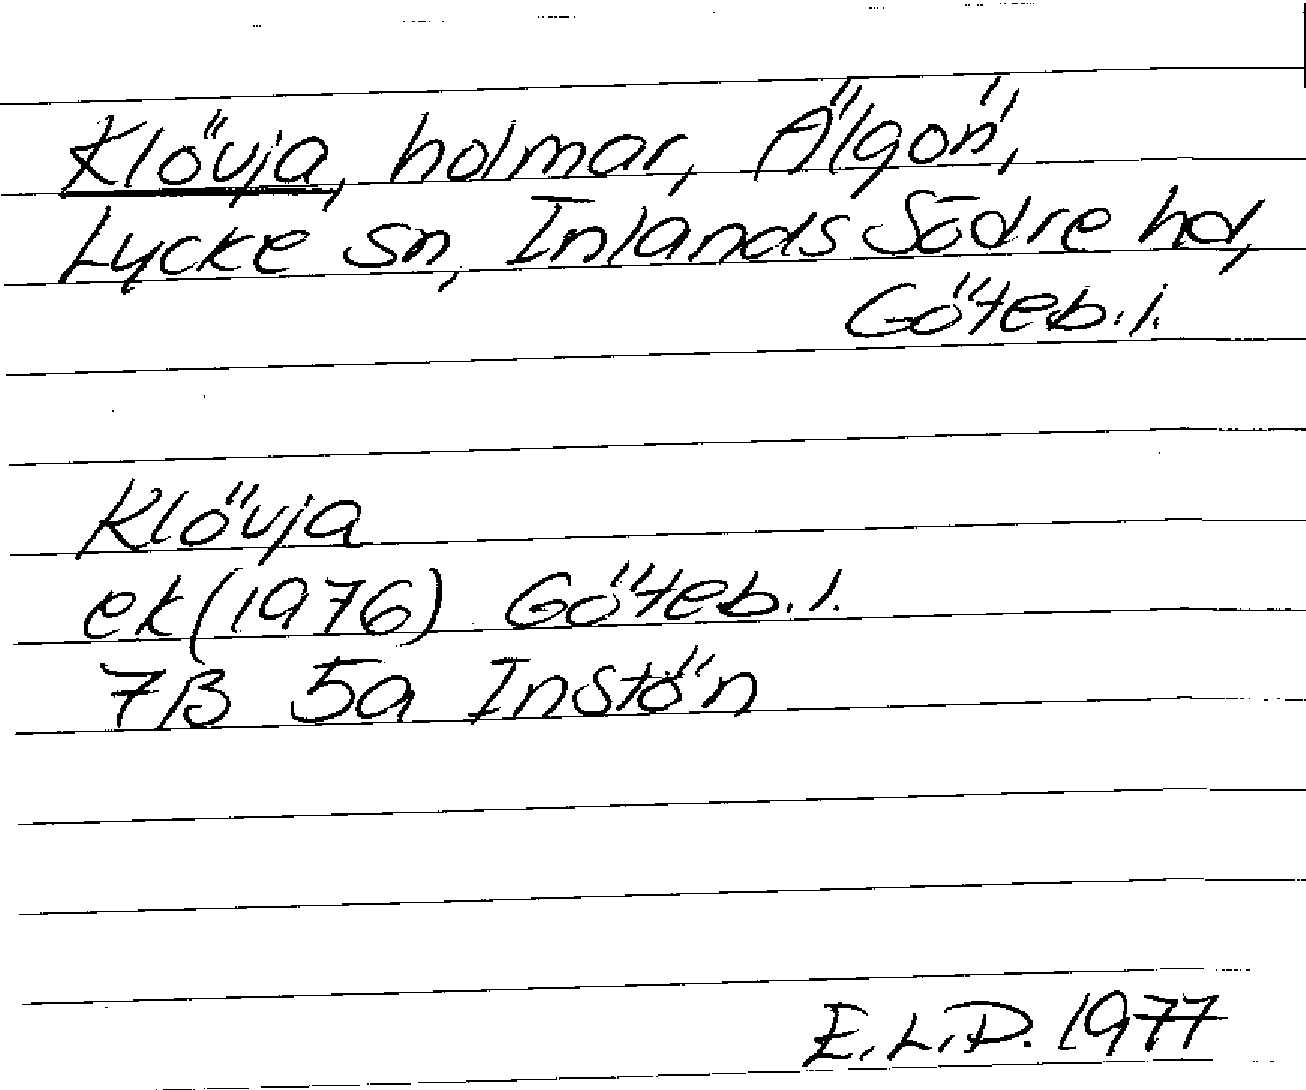 Klövja, holmar, Älgön,
Lycke sn, Inlands Södre hd,
Göteb. l.
Klövja
ek (1976) Göteb. l.
7B 5a Instön
E. L. D. 1977